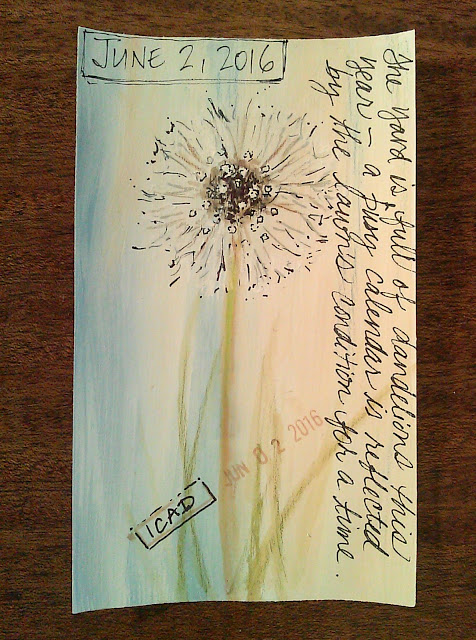 JUNE 2, 2016
The yard is full of dandelions this
year – a busy calendar is reflected
by the lawn's condition for a time.
JUN 02 2016
ICAD